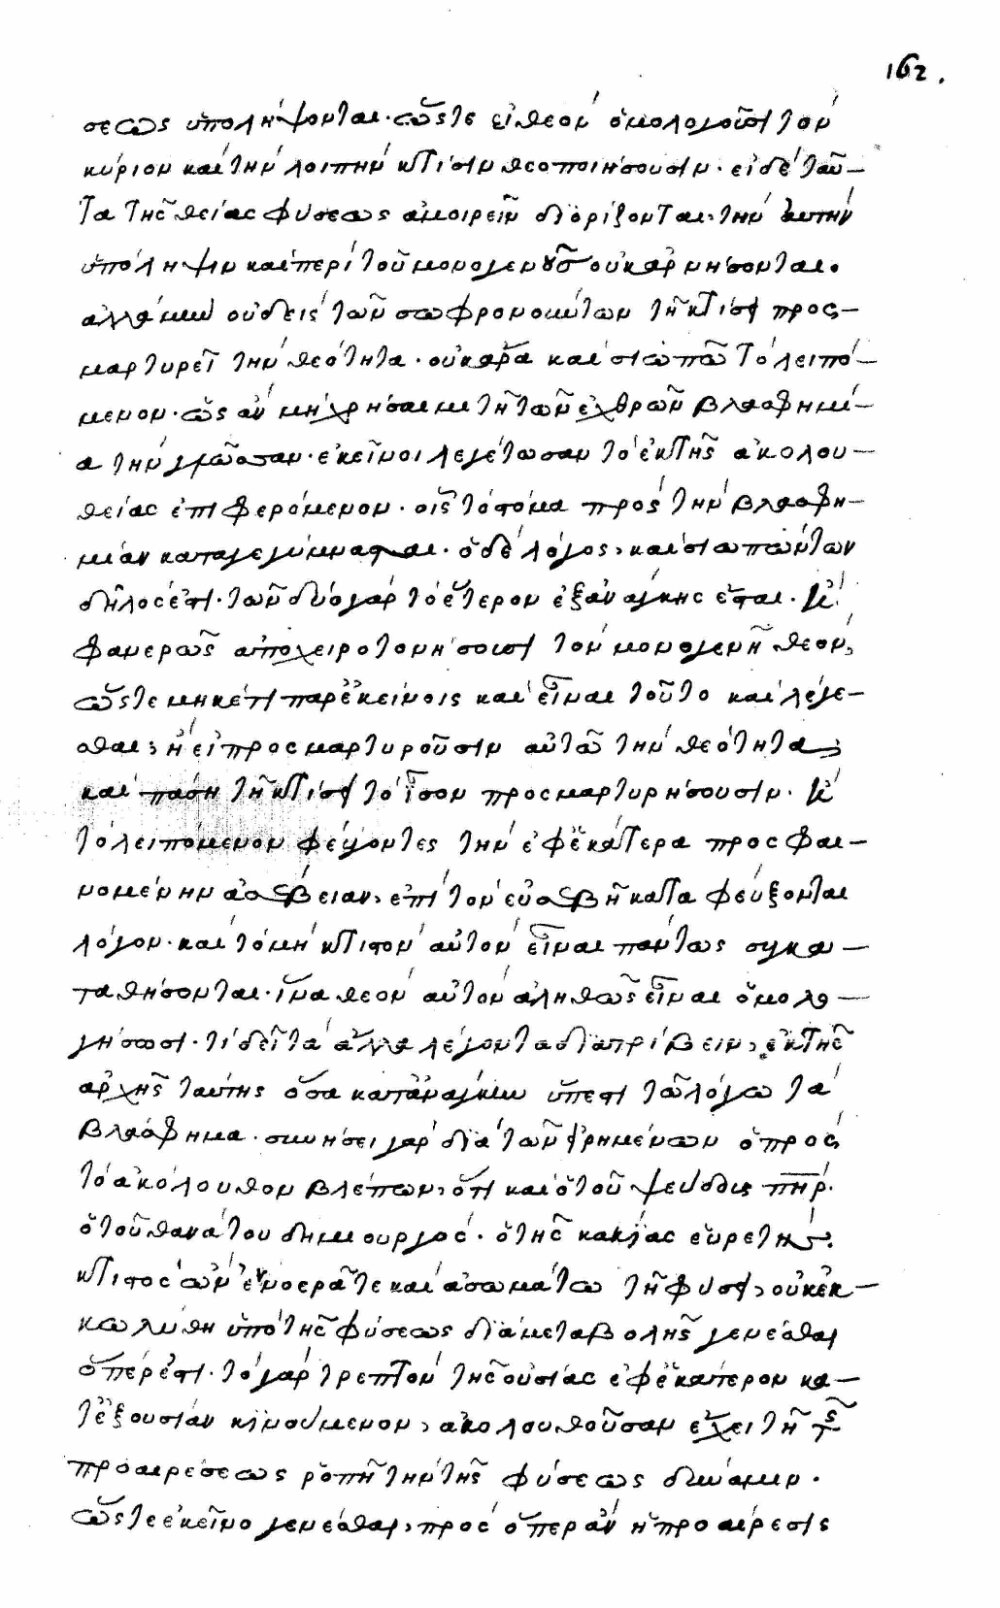 162.
σεως ὑποληψονται. ὥστε εἰ θεὸν ὁμολογοῦσι τὸν
κύριον καὶ τὴν λοιπὴν κτίσιν θεοποιήσουσιν. εἰ δὲ ταῦ–
τα τῆς θείας φύσεως ἀμοιρεῖν διορίζονται, τὴν αὐτὴν
ὑπόληψιν καὶ περὶ τοῦ μονογενοῦς οὐκ ἀρνήσονται.
ἀλλὰ μὴν οὐδεὶς τῶν σωφρονούντων τῇ κτίσει προς–
μαρτυρεῖ τὴν θεότητα. οὐκ ἄρα καὶ σιωπῶ τὸ λειπό–
μενον. ὡς ἂν μὴ χρήσαιμι τῇ τῶν ἐχθρῶν βλασφημί–
α τὴν γλῶσσαν. ἐκεῖνοι λεγέτωσαν τὸ ἐκ τῆς ἀκολου–
θείας ἐπιφερόμενον. οἷς τὸ στόμα πρὸς τὴν βλασφη–
μίαν καταγεγύμνασται. ὁ δὲ λόγος, καὶ σιωπώντων
δῆλός ἐστι. τῶν δύο γὰρ τὸ ἕτερον ἐξ ἀνάγκης ἔσται. ἢ
φανερῶς ἀποχειροτονήσουσι τὸν μονογενῆ θεόν,
ὥστε μηκέτι παρ' ἐκείνοις καὶ εἶναι τοῦτο καὶ λέγε–
σθαι, ἢ εἰ προσμαρτυροῦσιν αὐτῷ τὴν θεότητα,
καὶ πάσῃ τῇ κτίσει τὸ ἴσον προσμαρτυρήσουσιν. ἢ
τὸ λειπόμενον φεύγοντες τὴν ἐφ' ἑκάτερα προσφαι–
νομένην ἀσέβειαν, ἐπὶ τὸν εὐσεβῆ καταφεύξονται
λόγον. καὶ τὸ μὴ κτιστὸν αὐτὸν εἶναι πάντως συγκα–
ταθήσονται. ἵνα θεὸν αὐτὸν ἀληθῶς εἶναι ὁμολο–
γήσωσι. τί δεῖ τὰ ἄλλα λέγοντα διατρίβειν, ἐκ τῆς
ἀρχῆς ταύτης ὅσα κατ' ἀνάγκην ὕπεστι τῷ λόγῳ τὰ
βλάσφημα. συνήσει γὰρ διὰ τῶν εἰρημένων ὁ πρὸς
τὸ ἀκόλουθον βλέπων, ὅτι καὶ ὁ τοῦ ψεύδους πηρ.
ὁ τοῦ θανάτου δημιουργός. ὁ τῆς κακίας εὑρετὴς.
κτιστὸς ὢν ἐν νοερᾷ τε καὶ ἀσωμάτῳ τῇ φύσει, οὐκ ἐκ–
κωλύθη ὑπὸ τῆς φύσεως διὰ μεταβολῆς γενέσθαι
ὅπερ ἐστι. τὸ γὰρ τρεπτὸν τῆς οὐσίας ἐφ' ἑκάτερον κα–
τ' ἐξουσίαν κινούμενον, ἀκολουθοῦσαν ἔχει τῇ τῆς
προαιρέσεως ῥοπῇ τὴν τῆς φύσεως δύναμιν.
ὥστε ἐκεῖνο γενέσθαι, πρὸς ὅπερ ἂν ἡ προαίρεσις